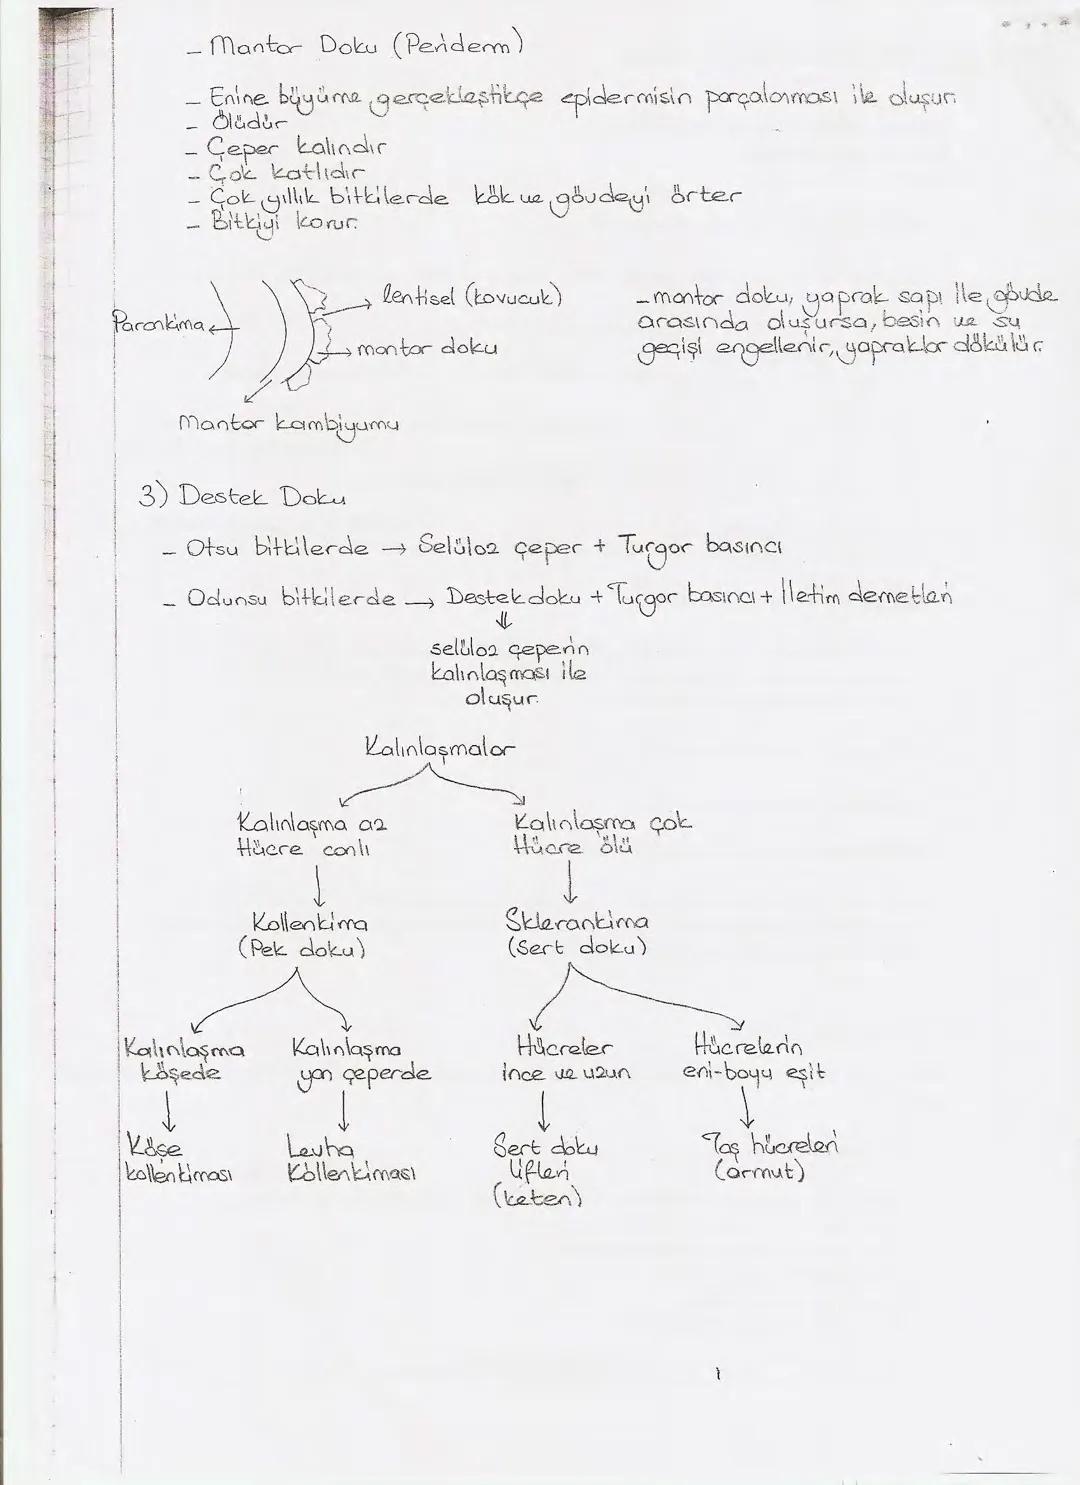 - Mantar Doku (Periderm)
- Enine büyüme gerçekleştikçe epidermisin parçalanması ile oluşur.
- Ölüdür
- Çeper kalındır
- Çok katlıdır
- Çok yıllık bitkilerde kök ve gövdeyi örter
- Bitkiyi korur.
lentisel (kovucuk)
Parankima
mantar doku
Mantar kambiyumu
- mantar doku, yaprak sapı ile gövde
arasında oluşursa, besin ve su
geçişi engellenir, yapraklar dökülür.
3) Destek Doku
- Otsu bitkilerde → Selüloz çeper + Turgor basıncı
- Odunsu bitkilerde → Destek doku + Turgor basıncı + İletim demetleri
⇓
selüloz çeperin
kalınlaşması ile
oluşur.
Kalınlaşmalar
Kalınlaşma az
Hücre canlı
Kalınlaşma çok
Hücre ölü
Kollenkima
(Pek doku)
Sklerankima
(Sert doku)
Kalınlaşma
köşede
Kalınlaşma
yan çeperde
Hücreler
ince ve uzun
Hücrelerin
eni-boyu eşit
Köşe
kollenkiması
Levha
Kollenkiması
Sert doku
lifleri
(keten)
Taş hücreleri
(armut)
1